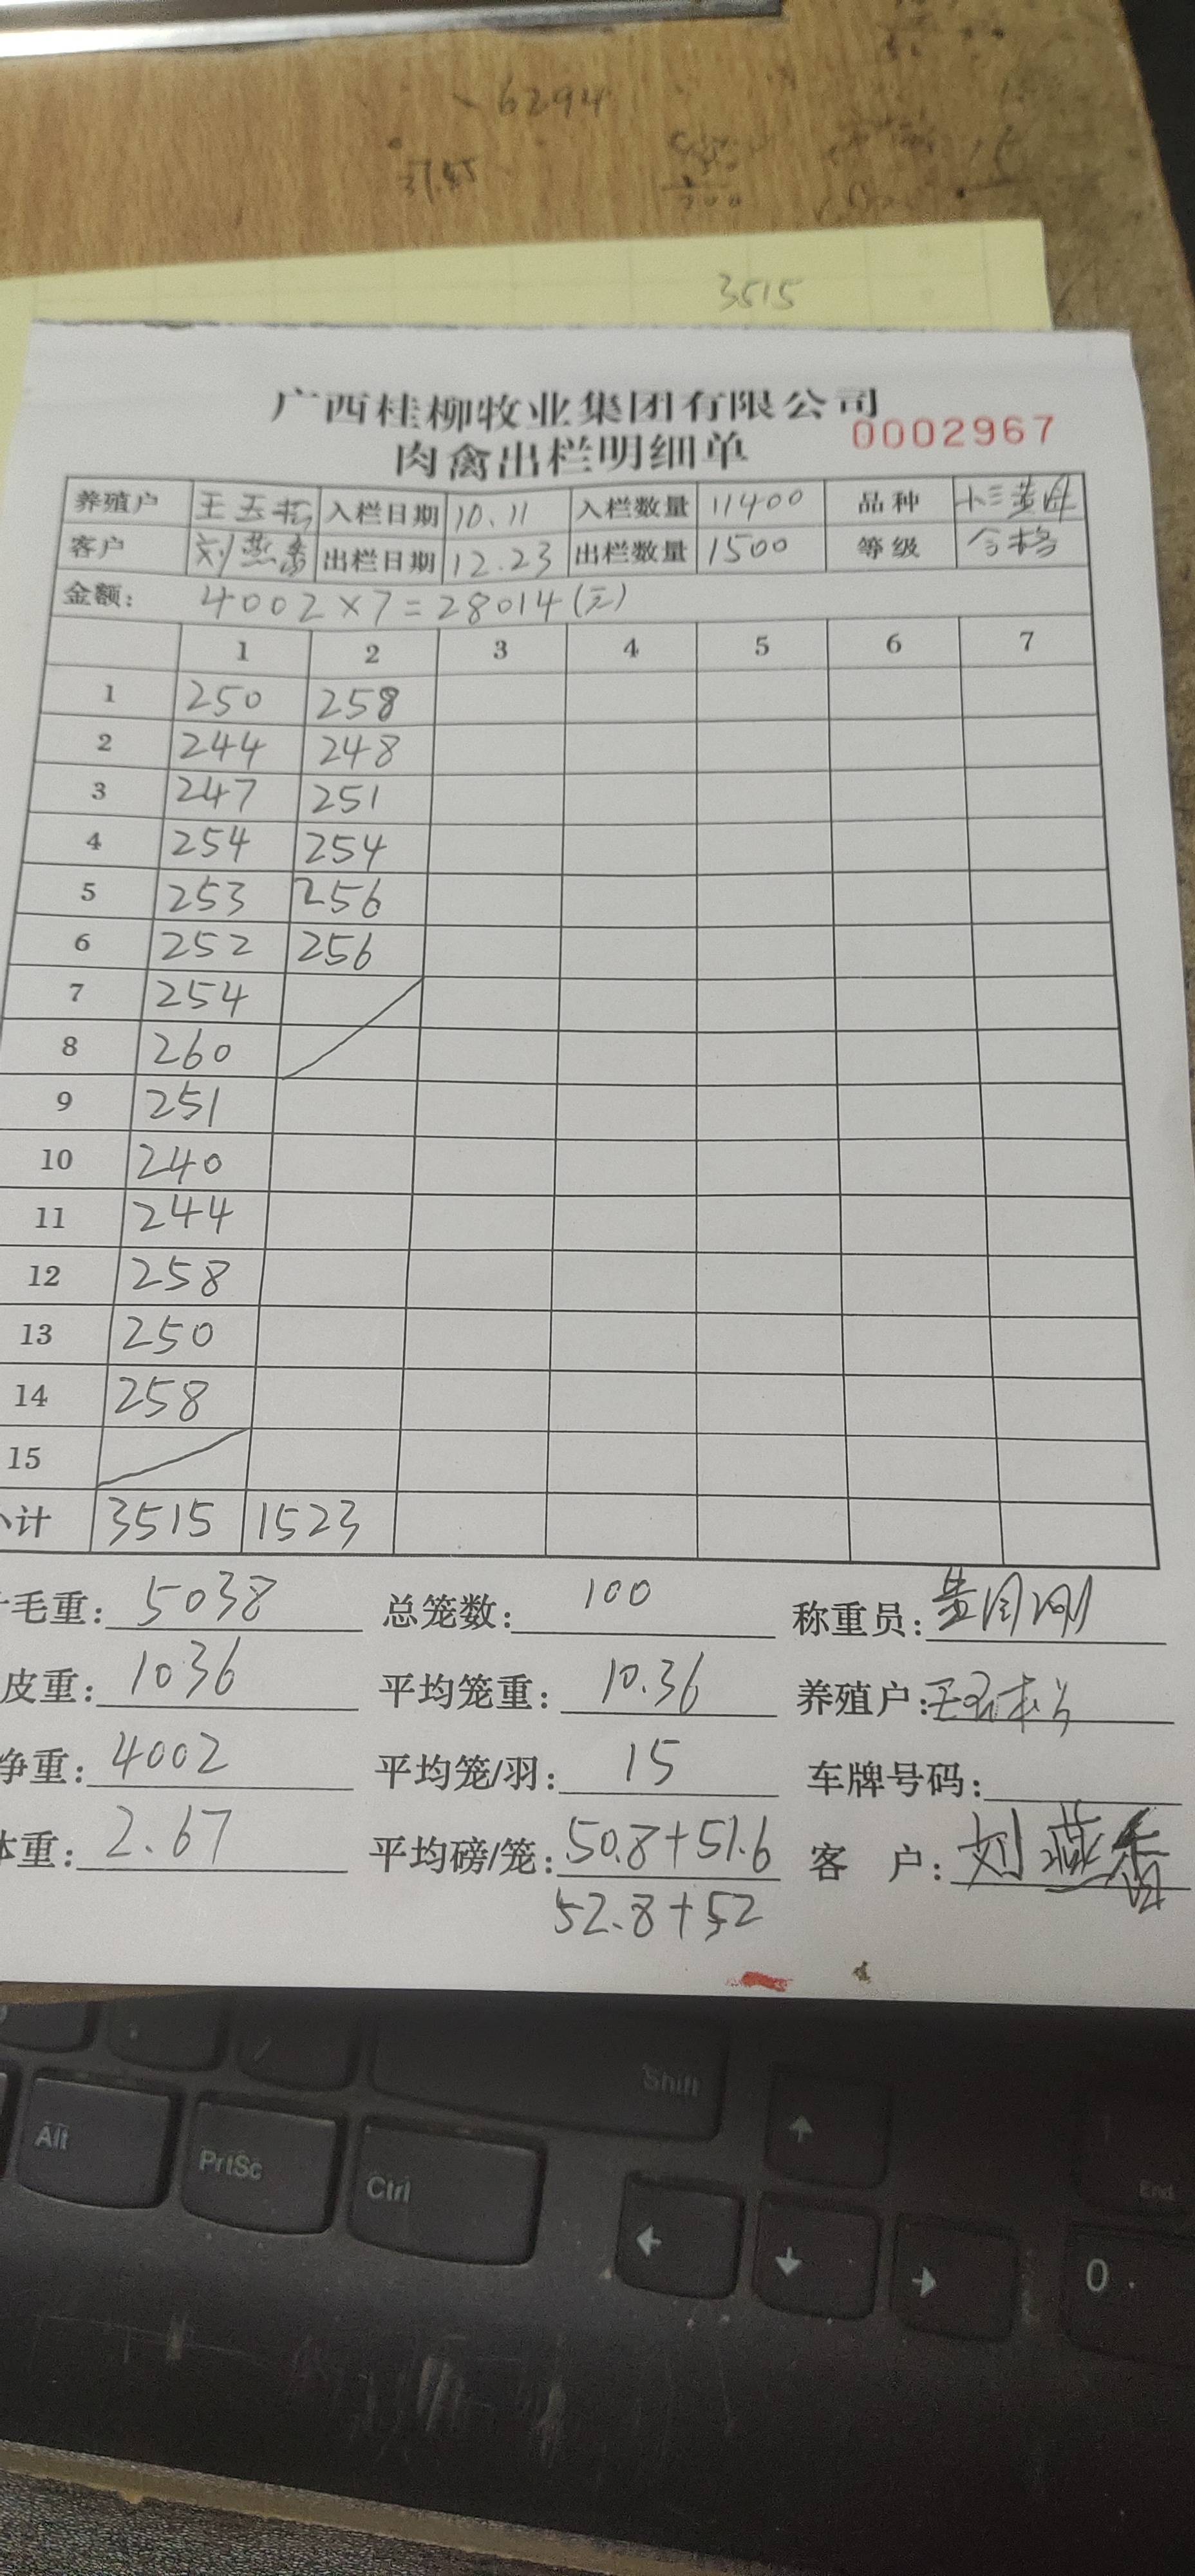 6294
37.45
15
3515
广西桂柳牧业集团有限公司
肉禽出栏明细单 0002967
养殖户 王玉松 入栏日期 10.11 入栏数量 11400 品种
客户 刘燕香 出栏日期 12.23 出栏数量 1500 等级 合格
金额: 4002×7=28014(元)
1 2 3 4 5 6 7
1 250 258
2 244 248
3 247 251
4 254 254
5 253 256
6 252 256
7 254
8 260
9 251
10 240
11 244
12 258
13 250
14 258
15
计 3515 1523
毛重: 5038 总笼数: 100 称重员:
皮重: 1036 平均笼重: 10.36 养殖户: 王玉松
净重: 4002 平均笼/羽: 15 车牌号码:
体重: 2.67 平均磅/笼: 50.8+51.6 客户: 刘燕香
52.8+52
Shift
Alt PrtSc Ctrl
End
0 .